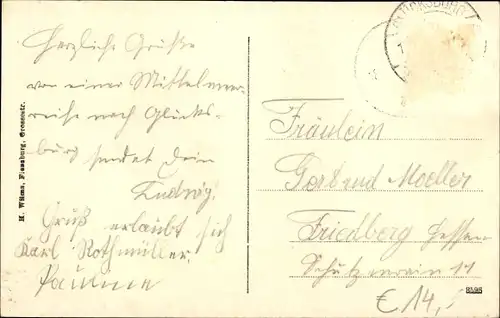 Herzliche Grüße
von einer Mittelmeer-
reise nach Glücks-
burg sendet Dein
Ludwig.
Gruß erlaubt sich
Karl Rothmüller.
Pauline
H. Wilms, Flensburg, Grossestr.
GLÜCKSBURG
Fräulein
Gertrud Moeller
Friedberg Hessen
11
8598
€ 14,